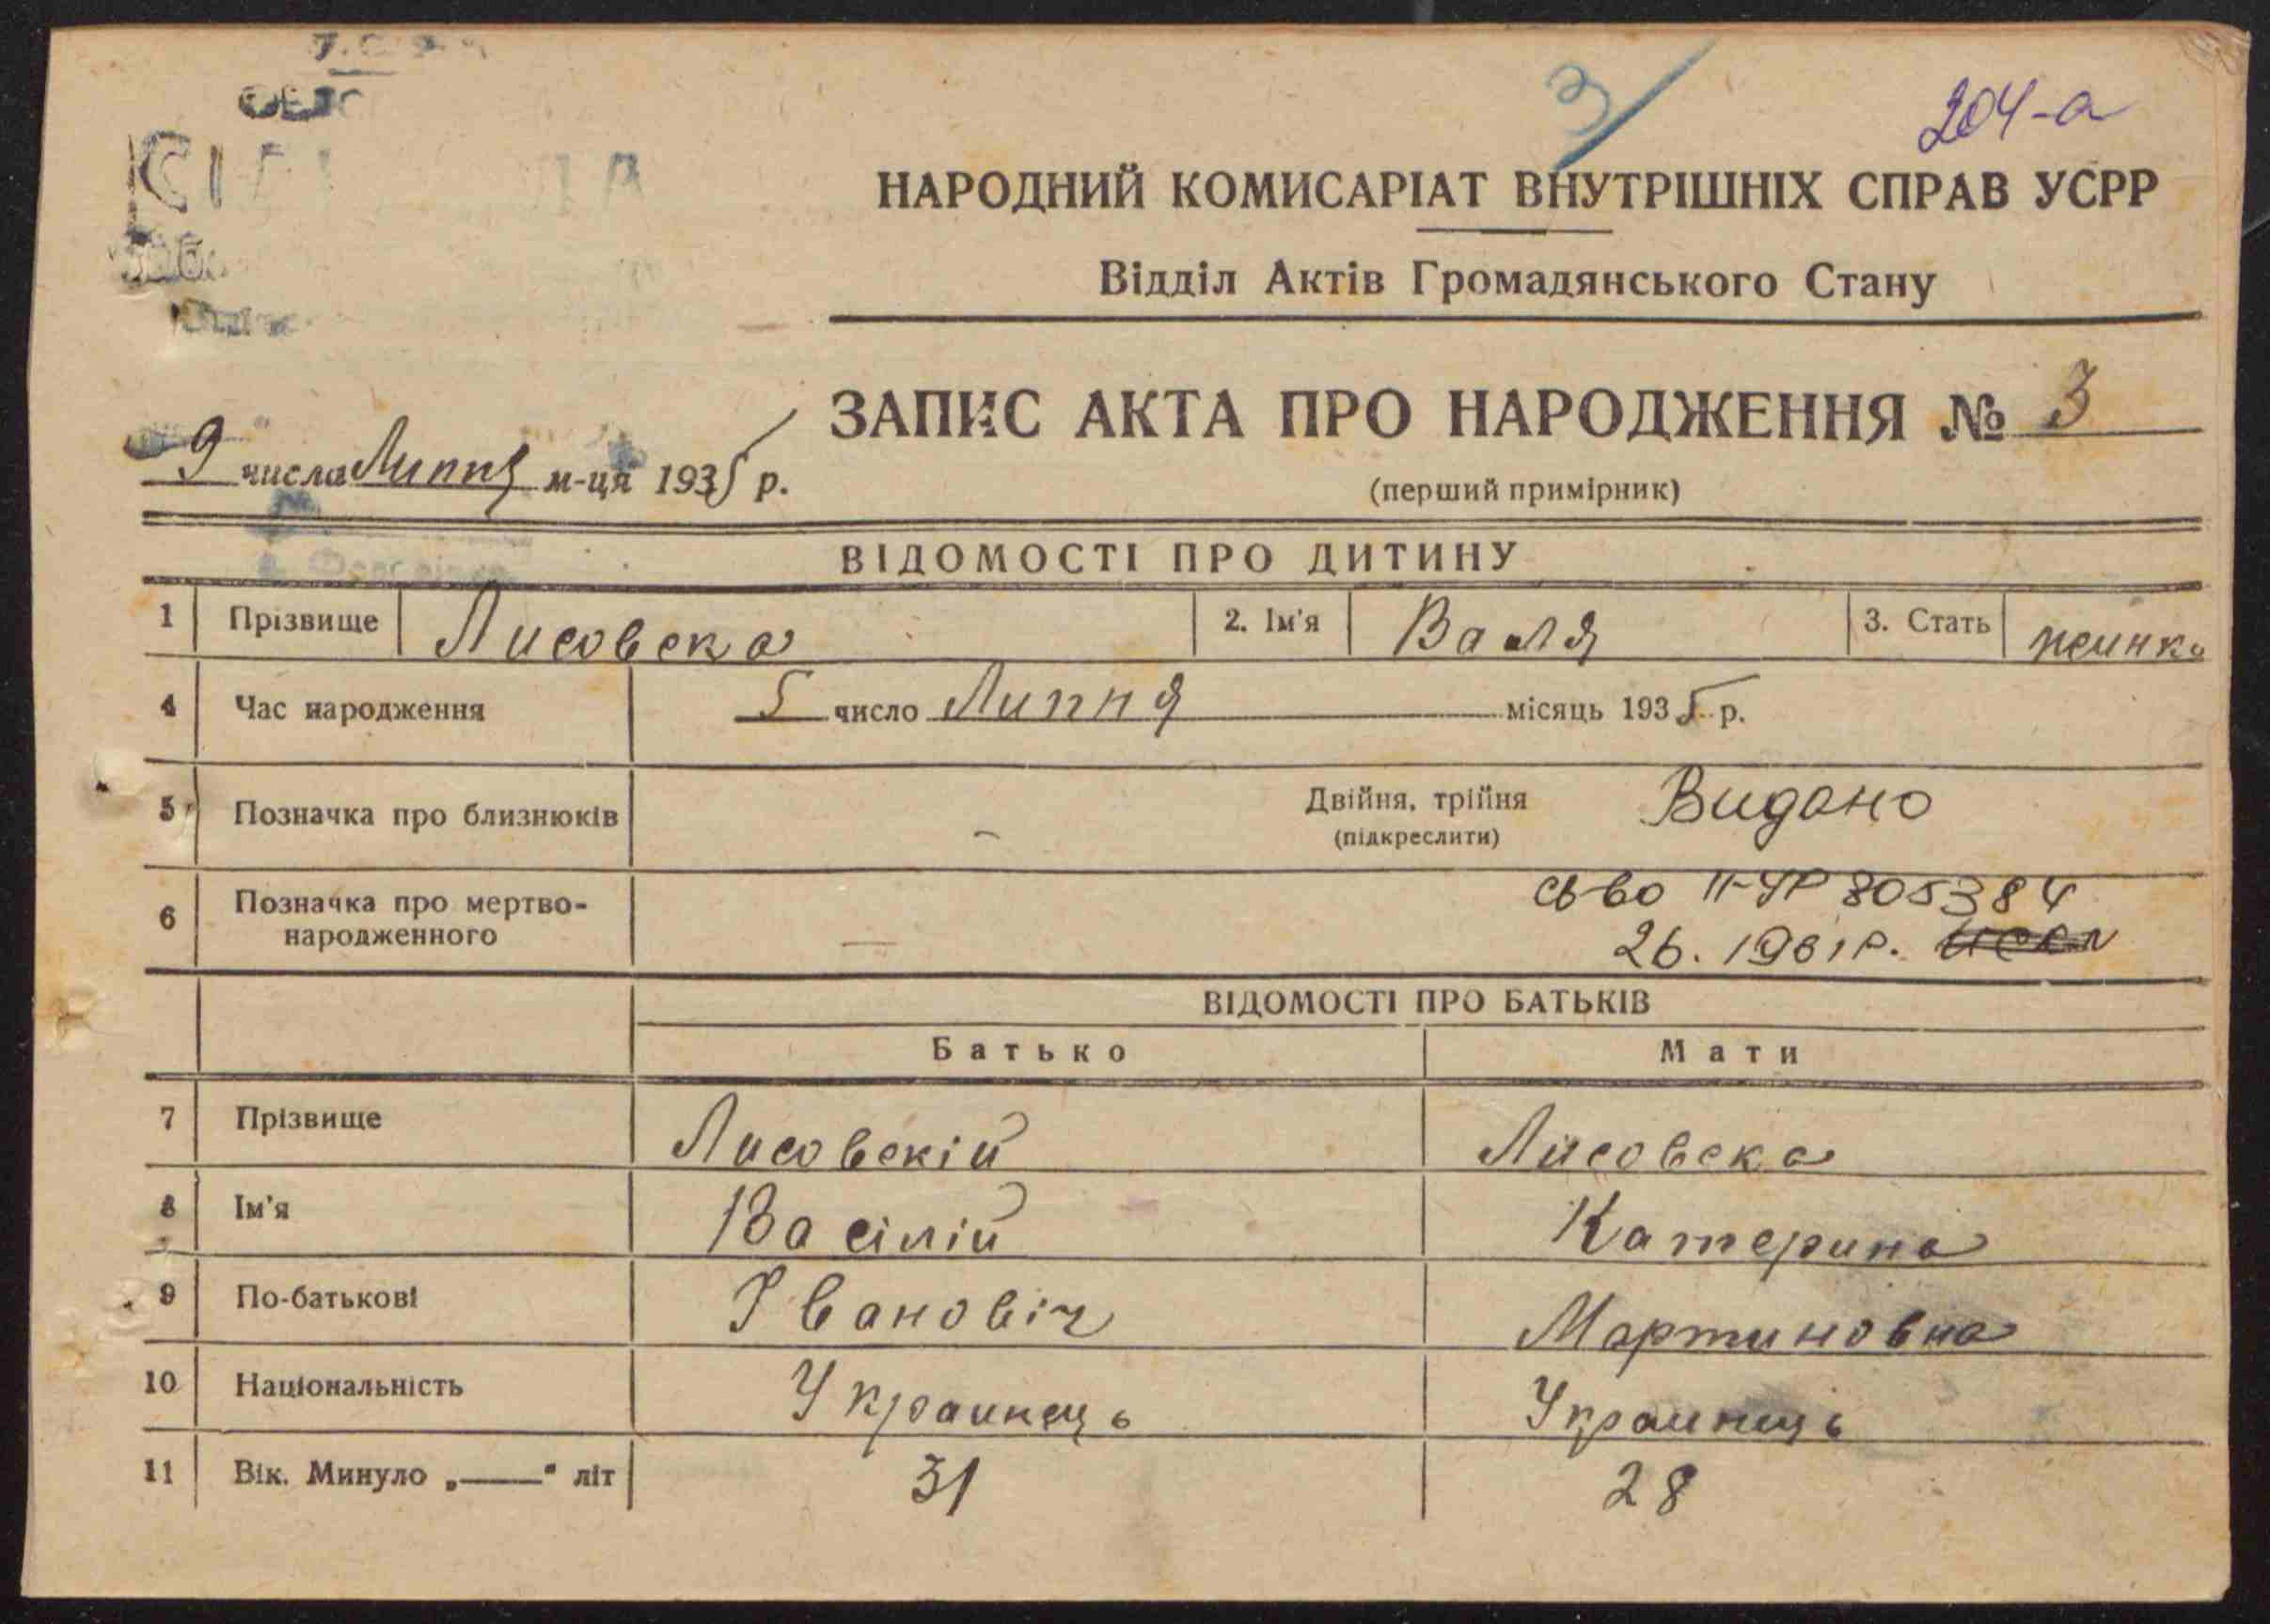 3
204-а
НАРОДНИЙ КОМИСАРІАТ ВНУТРІШНІХ СПРАВ УСРР
Відділ Актів Громадянського Стану
ЗАПИС АКТА ПРО НАРОДЖЕННЯ № 3
9 числа Липня м-ця 1935 р.
(перший примірник)
ВІДОМОСТІ ПРО ДИТИНУ
1 Прізвище Лисовска 2. Ім'я Валя 3. Стать жінка
4 Час народження 5 число Липня місяць 1935 р.
5 Позначка про близнюків - Двійня, трійня Видано
(підкреслити)
6 Позначка про мертво-народженного — св-во II-УР 805384
26. 1961р.
ВІДОМОСТІ ПРО БАТЬКІВ
Батько Мати
7 Прізвище Лисовскій Лисовска
8 Ім'я Васілій Катерина
9 По-батькові Івановіч Мартиновна
10 Національність Украинець Украинець
11 Вік. Минуло „——" літ 31 28